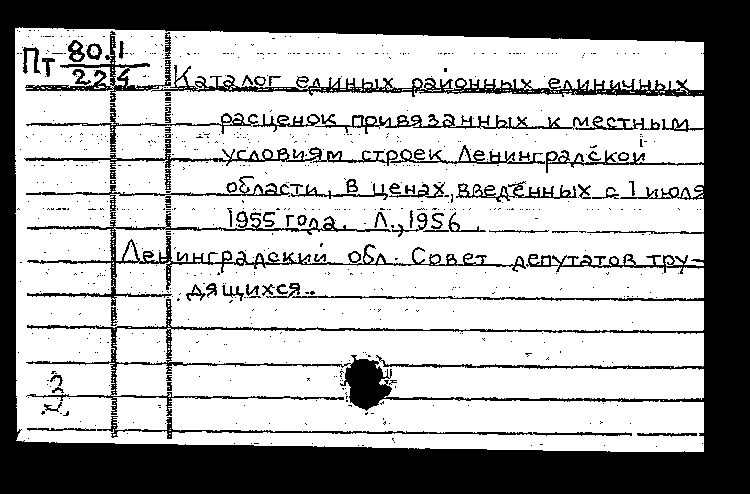 Пт 80.1
22 4
Каталог единых районных единичных
расценок, привязанных к местным
условиям строек Ленинградской
области, в ценах, введённых с 1 июля
1955 года. Л., 1956.
Ленинградский обл. Совет депутатов тру-
дящихся.
3